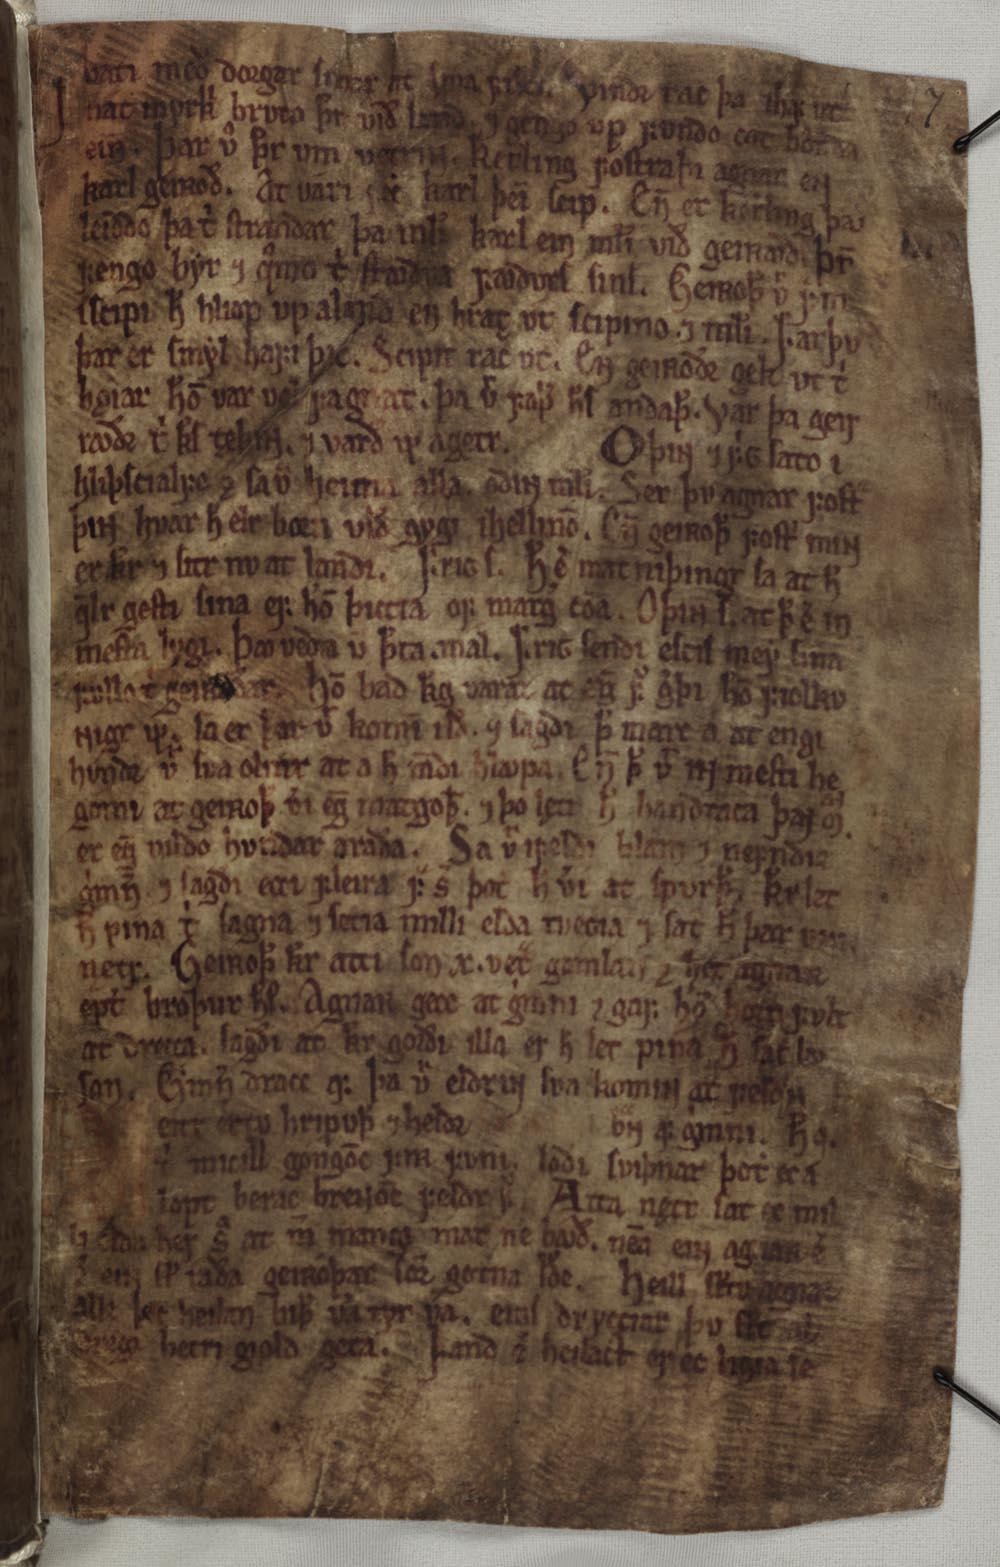 bati með dorgar sinar at sma fiski. Vindr rac þa ihaf vt
I nat myrkr bruto þr við land. ⁊ gengo vp fundo cot bonda
ein. þar v̓ þr vm vetrin. Kerling fostraþi agnar en
karl geirroð. At vari feck karl þei scip. En er kerling þau
leiddo þa t̓ strandar þa mlti karl ein mli við geirrauð. þr̄
fengo byr ⁊ qmo t̓ stauðva fauður sins. Geirroþ v̓ fram
iscipi h̄ hliop vp aland en hratt vt scipino. ⁊ mlti. Far þv
þar er smyl hafi þic. Scipit rac vt. En geirrodr gek vt t̓
bǿiar hō var vel fagnat. þa v̓ faþ hs andaþ. Var þa geir
raudr t̓ ks tekin. ⁊ vard mr agetr. Oþin ⁊ frig sato i
hliþscialfo ⁊ sa v̄ heima alla. odin mli. Ser þv agnar fostr
þin hvar h̄ elr born við gygi ihellino. En geirroþ fostr min
er kr ⁊ sitr nv at landi. Frig s. H̄ e̓ matniþingr sa at h̄
qlr gesti sina ef hō þicia of marg coma. Oþin s. at þ e̓ in
mesta lygi. Þau veðia v̄ þta mal. Frig sendi escis mey sina
fullo t̓ geirrodar. hō bad kg varaz at eg f̓ g̓þi hō fiolkv
nigr mr. sa er þar v̓ komin ild. ⁊ sagdi þ marc a at engi
hundr v̓ sva olmr at a h̄ mdi hlaupa. En þ v̓ in mesti he
gomi at geirroþ v̓i eg matgoþ. ⁊ þo letr h̄ handtaca þan
er eg vildo hundar araða. Sa v̓ ifeldi blam ⁊ nefndiz
g̓mn̄ ⁊ sagdi ecci fleira f̓ s̓ þot h̄ v̓i at spurþ. Kr let
h̄ pina t̓ sagna ⁊ setia milli elda tvegia ⁊ sat h̄ þar viii
netr. Geirroþ kr atti son .x. vet̓ gamlan ⁊ het agnarr
ept̓ broþur hs. Agnarr gecc at g̓mni ⁊ gaf hō horn fult
at drecca. sagdi at kr gǫrdi illa er h̄ let pina h̄ sac lau
san. Gmn̄ dracc af. þa v̓ eldrin sva komin at feldrin
bran af gmni. h̄ q.
eitr ertu hripuþ ⁊ heldr
t̓ micill gongōc firr funi. lodi sviþnar þot ec a
lopt berac brennōc feldr f̓. Atta netr sat ec mil
li elda her s̓ at m̄ mangi mat ne baud. nēa ein agnar e̓
ein skal rada geirroþar son gotna landi. Heill skaltu agnar
allz þic heilan biþ vera tyr vera. eins dryccjar þv skalt al
drego betri giold geta. Land e̓ heilact er ec liggia se